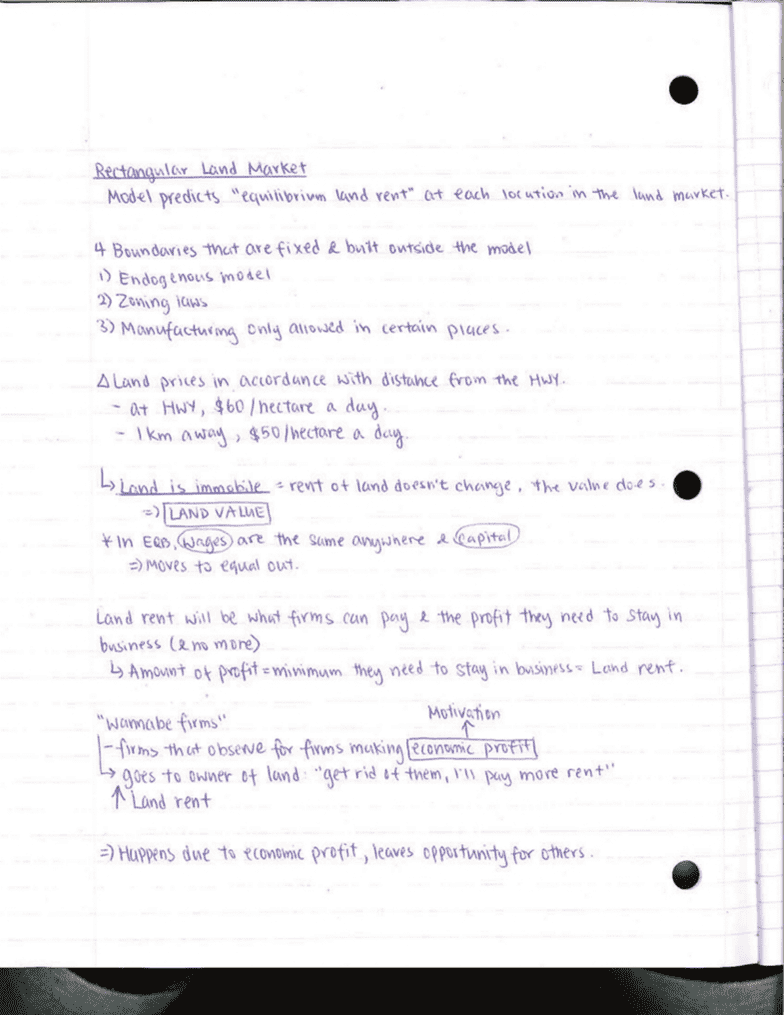 Rectangular Land Market
Model predicts "equilibrium land rent" at each location in the land market.
4 Boundaries that are fixed & built outside the model
1) Endogenous model
2) Zoning laws
3) Manufacturing only allowed in certain places.
Δ Land prices in accordance with distance from the HWY.
- at HWY, $60/hectare a day.
- 1km away, $50/hectare a day.
↳ Land is immobile = rent of land doesn't change, the value does.
=) LAND VALUE
* In EQB, wages are the same anywhere & capital
=) Moves to equal out.
Land rent will be what firms can pay & the profit they need to stay in
business (& no more)
↳ Amount of profit = minimum they need to stay in business = Land rent.
Motivation
↑
"Wannabe firms"
- firms that observe for firms making economic profit
→ goes to owner of land: "get rid of them, I'll pay more rent"
↑ Land rent
=) Happens due to economic profit, leaves opportunity for others.